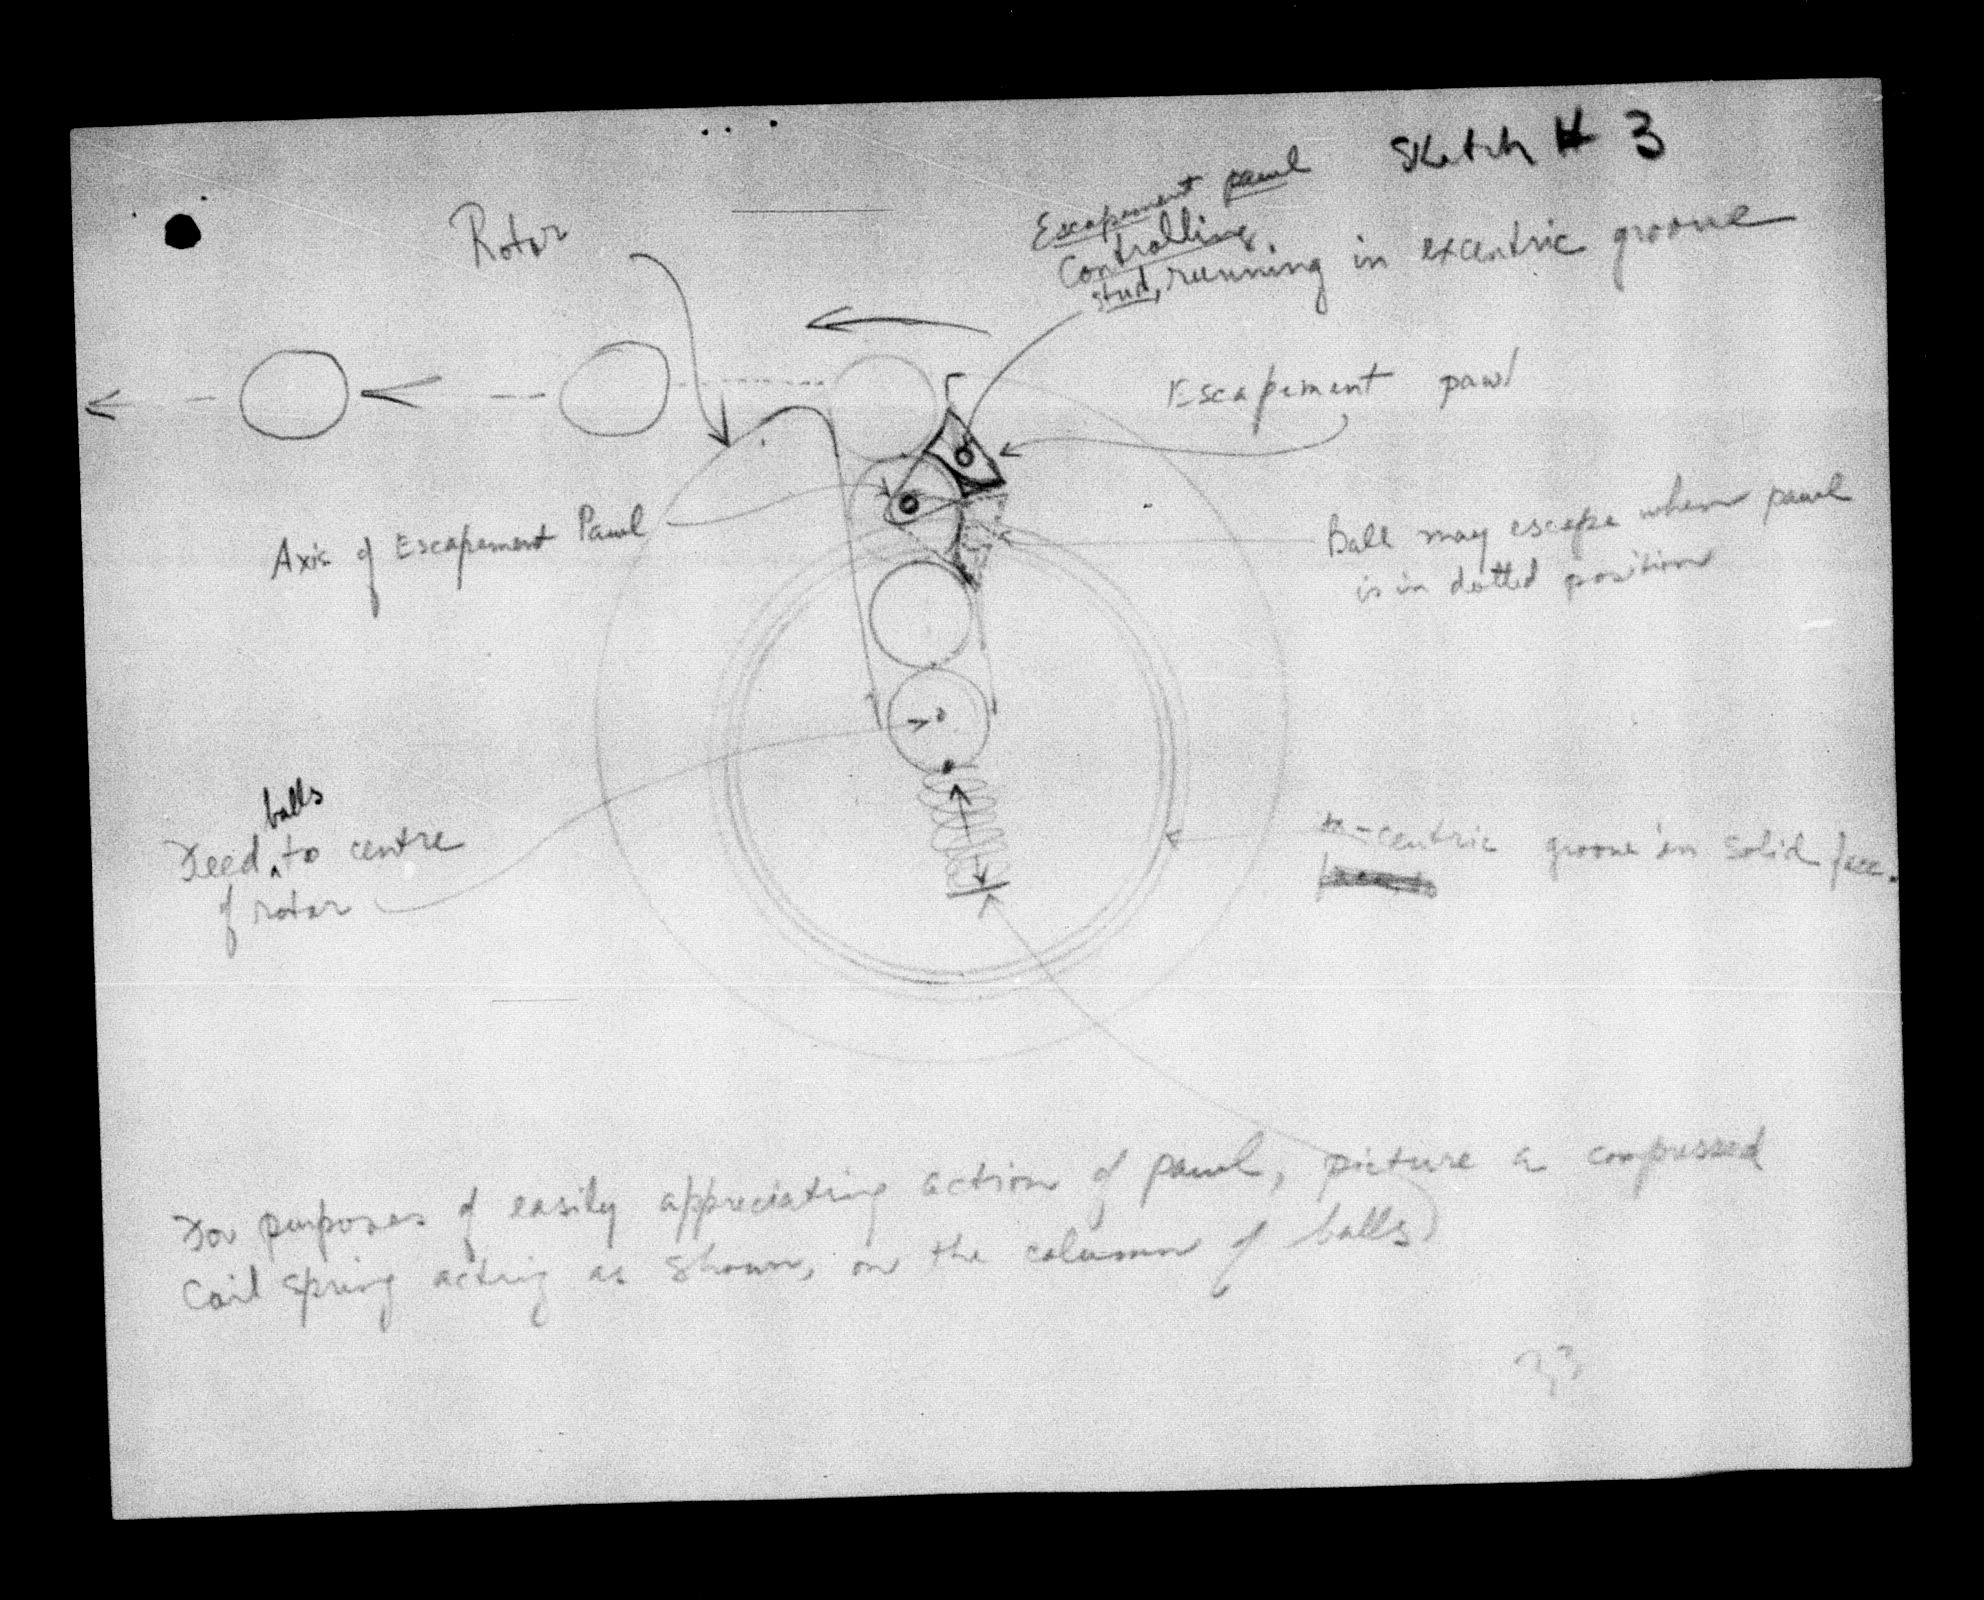 Sketch # 3
Rotor
Escapement pawl
Controlling
stud, running in excentric groove
Escapement pawl
Axis of Escapement Pawl
Ball may escape when pawl
is in dotted position
balls
Feed ‸ to centre
of rotor
-centric groove in solid face.
For purposes of easily appreciating action of pawl, picture a compressed
Coil spring acting as shown, on the column of balls